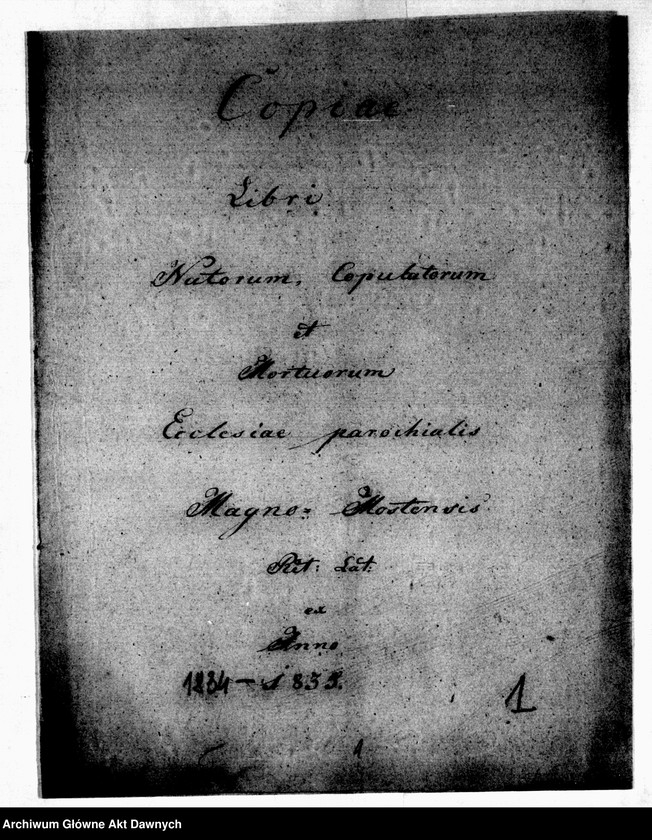 Copiae
Libri
Natorum, Copulatorum
et
Mortuorum
Ecclesiae parochialis
Magno= Mostensis
Rit: Lat:
ex
Anno
1834 – 1835.
1
1
Archiwum Główne Akt Dawnych